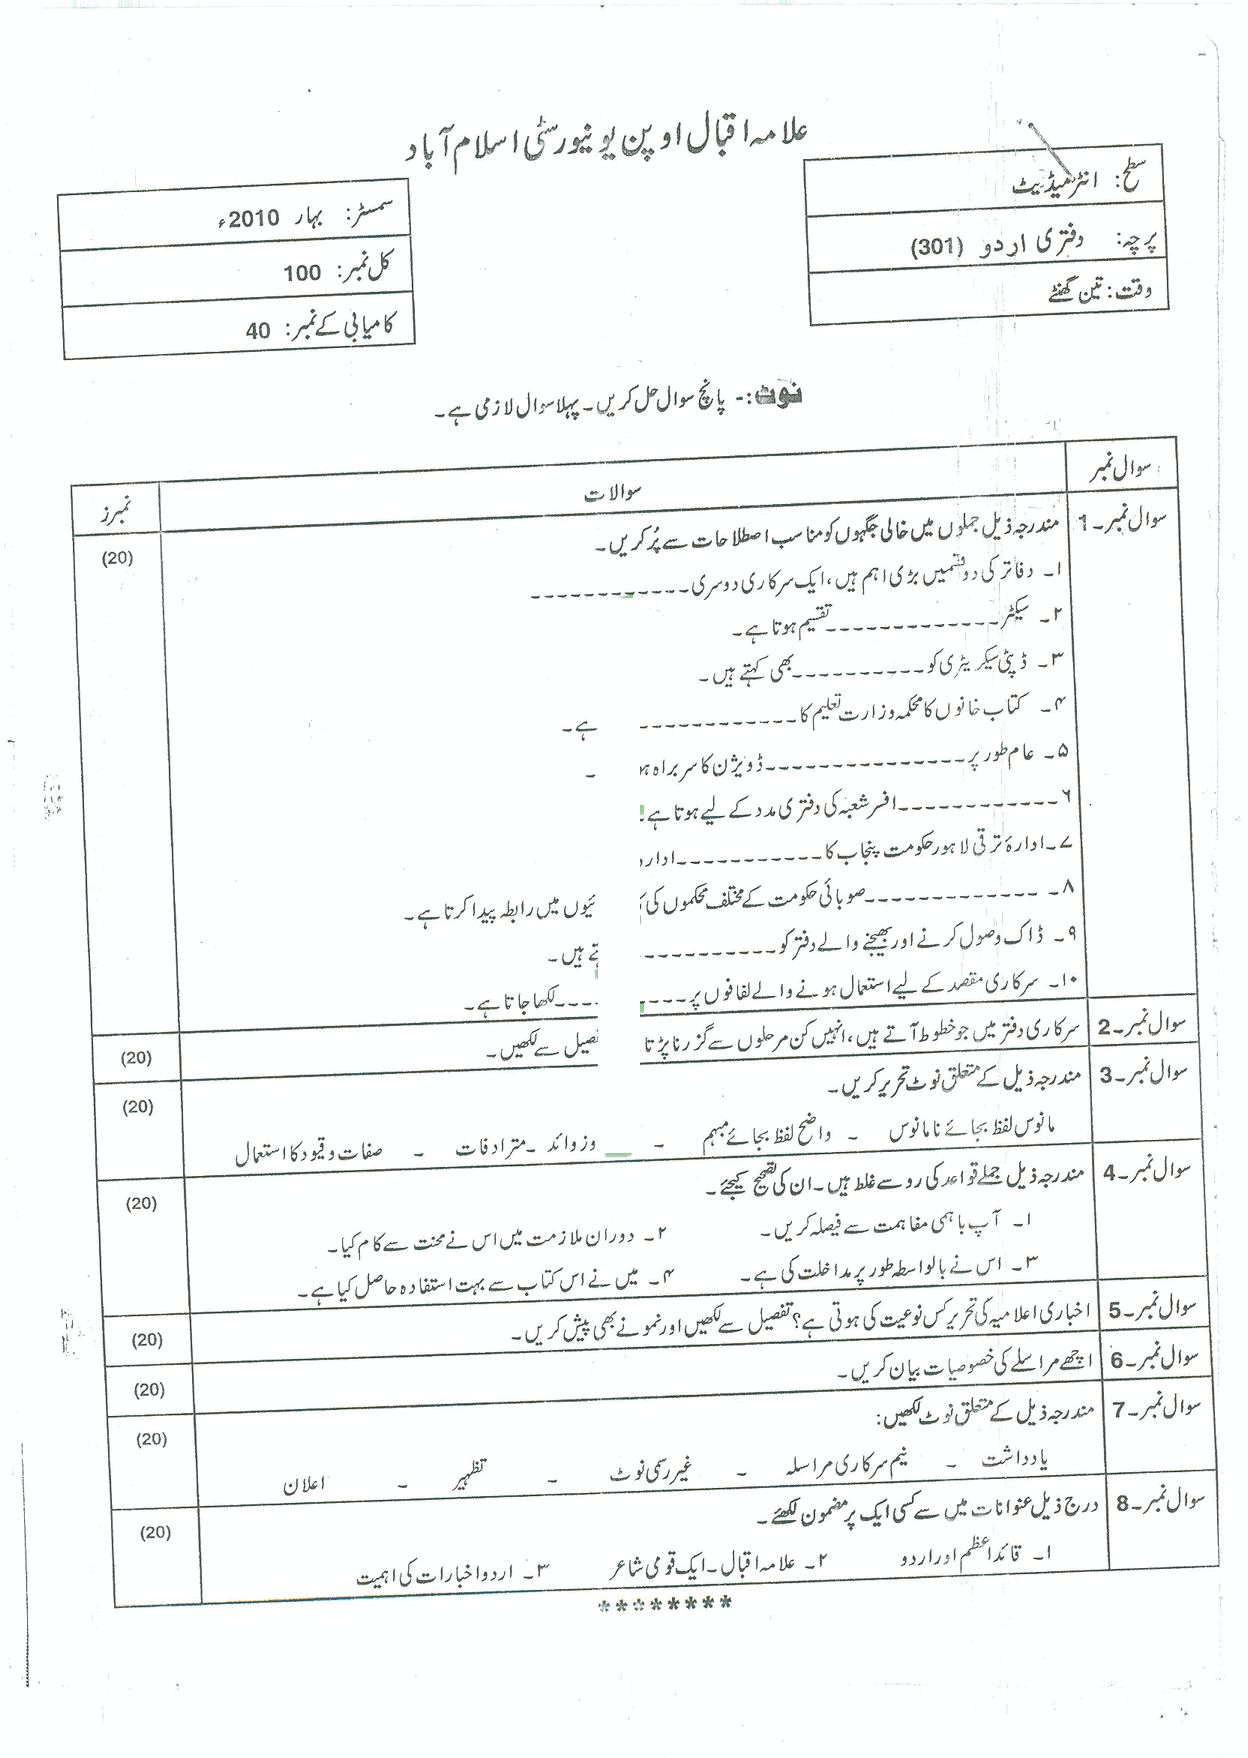 علامہ اقبال اوپن یونیورسٹی اسلام آباد
سطح: انٹرمیڈیٹ
پرچہ: دفتری اردو (301)
وقت: تین گھنٹے
سمسٹر: بہار 2010ء
کل نمبر: 100
کامیابی کے نمبر: 40
نوٹ:- پانچ سوال حل کریں۔ پہلا سوال لازمی ہے۔
سوال نمبر سوالات نمبرز
سوال نمبر۔1 مندرجہ ذیل جملوں میں خالی جگہوں کو مناسب اصطلاحات سے پُر کریں۔ (20)
۱۔ دفاتر کی دو قسمیں بڑی اہم ہیں، ایک سرکاری دوسری ------------
۲۔ سیکٹر ------------- تقسیم ہوتا ہے۔
۳۔ ڈپٹی سیکریٹری کو ---------- بھی کہتے ہیں۔
۴۔ کتاب خانوں کا محکمہ وزارت تعلیم کا ------------ ہے۔
۵۔ عام طور پر --------------- ڈویژن کا سربراہ ۔
۶۔ ------------ افسر شعبہ کی دفتری مدد کے لیے ہوتا ہے
۷۔ ادارۂ ترقی لاہور حکومت پنجاب کا -----------
۸۔ ------------- صوبائی حکومت کے مختلف محکموں کی ئیوں میں رابطہ پیدا کرتا ہے۔
۹۔ ڈاک وصول کرنے اور بھیجنے والے دفتر کو ----------- تے ہیں۔
۱۰۔ سرکاری مقصد کے لیے استعمال ہونے والے لفافوں پر ------- لکھا جاتا ہے۔
سوال نمبر۔2 سرکاری دفتر میں جو خطوط آتے ہیں، انہیں کن مرحلوں سے گزرنا پڑتا صیل سے لکھیں۔ (20)
سوال نمبر۔3 مندرجہ ذیل کے متعلق نوٹ تحریر کریں۔ (20)
مانوس لفظ بجائے نامانوس ۔ واضح لفظ بجائے مبہم ۔ وزوائد ۔ مترادفات ۔ صفات و قیود کا استعمال
سوال نمبر۔4 مندرجہ ذیل جملے قواعد کی رو سے غلط ہیں۔ ان کی تصحیح کیجئے۔ (20)
۱۔ آپ باہمی مفاہمت سے فیصلہ کریں۔ ۲۔ دوران ملازمت میں اس نے محنت سے کام کیا۔
۳۔ اس نے بالواسطہ طور پر مداخلت کی ہے۔ ۴۔ میں نے اس کتاب سے بہت استفادہ حاصل کیا ہے۔
سوال نمبر۔5 اخباری اعلامیہ کی تحریر کس نوعیت کی ہوتی ہے؟ تفصیل سے لکھیں اور نمونے بھی پیش کریں۔ (20)
سوال نمبر۔6 اچھے مراسلے کی خصوصیات بیان کریں۔ (20)
سوال نمبر۔7 مندرجہ ذیل کے متعلق نوٹ لکھیں: (20)
یادداشت ۔ نیم سرکاری مراسلہ ۔ غیر رسمی نوٹ ۔ تظہیر ۔ اعلان
سوال نمبر۔8 درج ذیل عنوانات میں سے کسی ایک پر مضمون لکھئے۔ (20)
۱۔ قائداعظم اور اردو ۲۔ علامہ اقبال۔ ایک قومی شاعر ۳۔ اردو اخبارات کی اہمیت
********